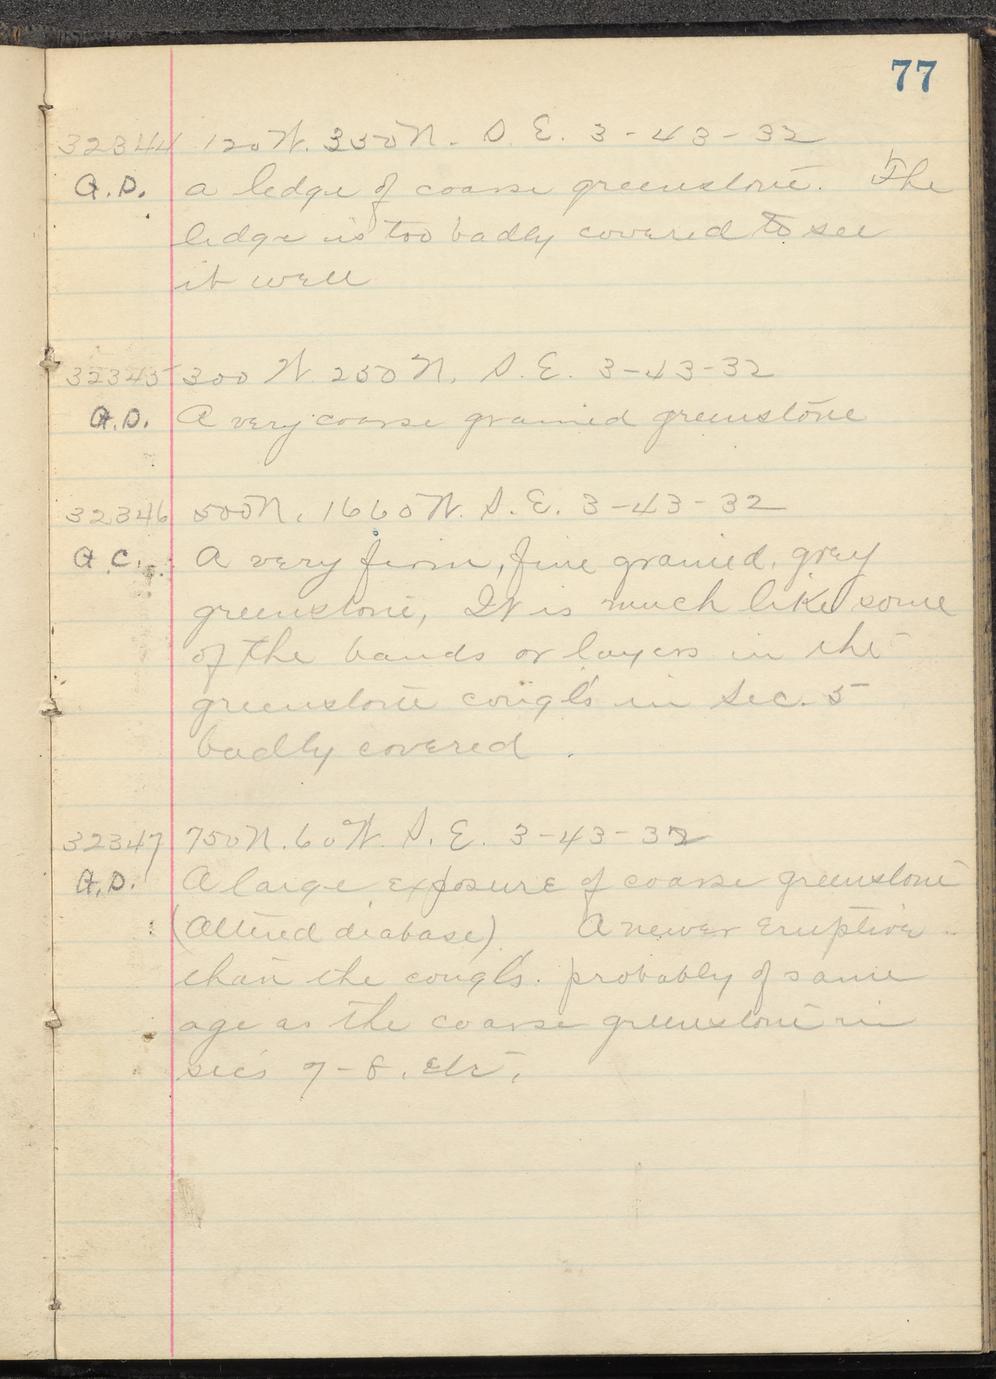 77
32344 120 W. 330 N. S. E. 3-43-32
A.D. a ledge of coarse greenstone. The
ledge is too badly covered to see
it well
32345 300 W. 250 N. S. E. 3-43-32
A.D. A very coarse grained greenstone
32346 500 N. 1660 W. S. E. 3-43-32
A.C. A very firm, fine grained, grey
greenstone, It is much like some
of the bands or layers in the
greenstone congl's in Sec. 5
badly covered.
32347 750 N. 60 W. S. E. 3-43-32
A.D. A large exposure of coarse greenstone
(Altered diabase) A newer Eruptive
than the congl's. probably of same
age as the coarse greenstone in
sec's 7-8. etc.